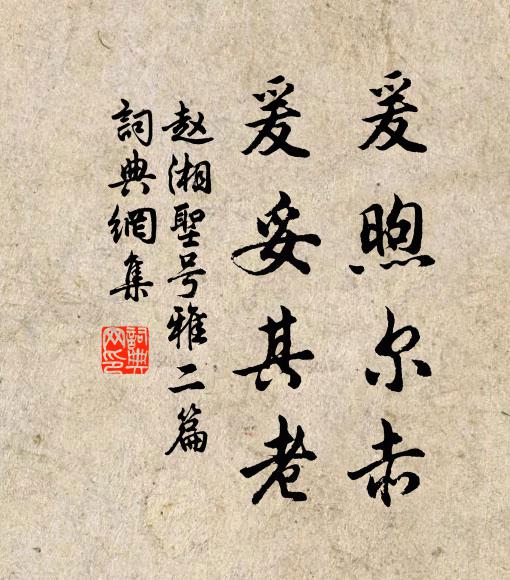 爰煦尔赤
爰妥其老
赵湘聖号雅二篇
詞典網集
詞典网印